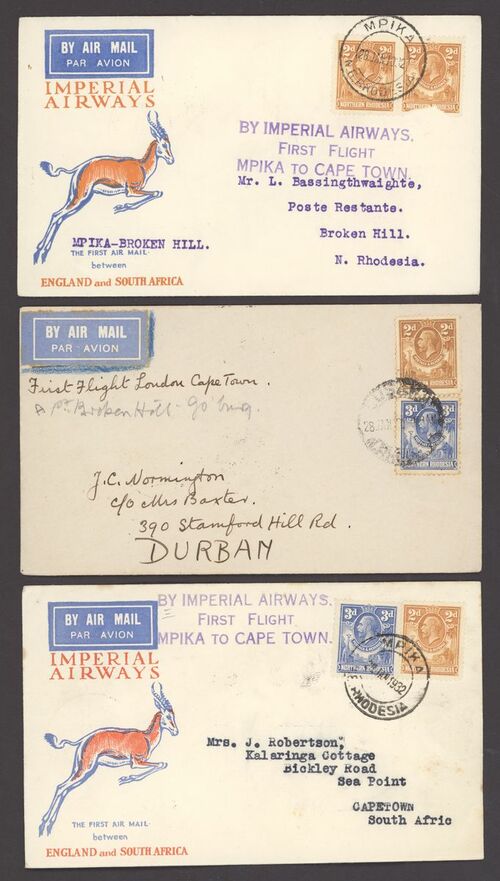 BY AIR MAIL
PAR AVION
IMPERIAL
AIRWAYS
MPIKA
2d 2d 2d
NORTHERN RHODESIA
BY IMPERIAL AIRWAYS.
FIRST FLIGHT
MPIKA TO CAPE TOWN.
Mr. L. Bassingthwaighte,
Poste Restante.
Broken Hill.
N. Rhodesia.
MPIKA-BROKEN HILL.
THE FIRST AIR MAIL
between
ENGLAND and SOUTH AFRICA
BY AIR MAIL
PAR AVION
2d 2d
3d
NORTHERN RHODESIA
First Flight London Cape Town.
Broken Hill
J.C. Normington
c/o Mrs Baxter.
390 Stamford Hill Rd.
DURBAN
BY AIR MAIL
PAR AVION
IMPERIAL
AIRWAYS
BY IMPERIAL AIRWAYS.
FIRST FLIGHT
MPIKA TO CAPE TOWN.
3d 3d 2d 2d
NORTHERN RHODESIA
MPIKA
1932
RHODESIA
Mrs. J. Robertson,
Kalaringa Cottage
Bickley Road
Sea Point
CAPETOWN
South Afric
THE FIRST AIR MAIL
between
ENGLAND and SOUTH AFRICA